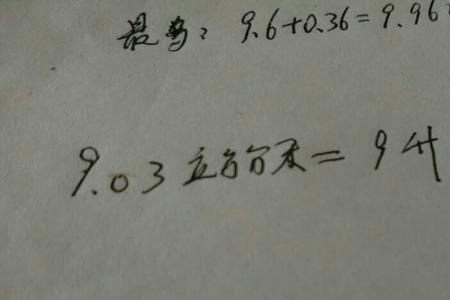 最高: 9.6+0.36=9.96
9.03立方分米=9升